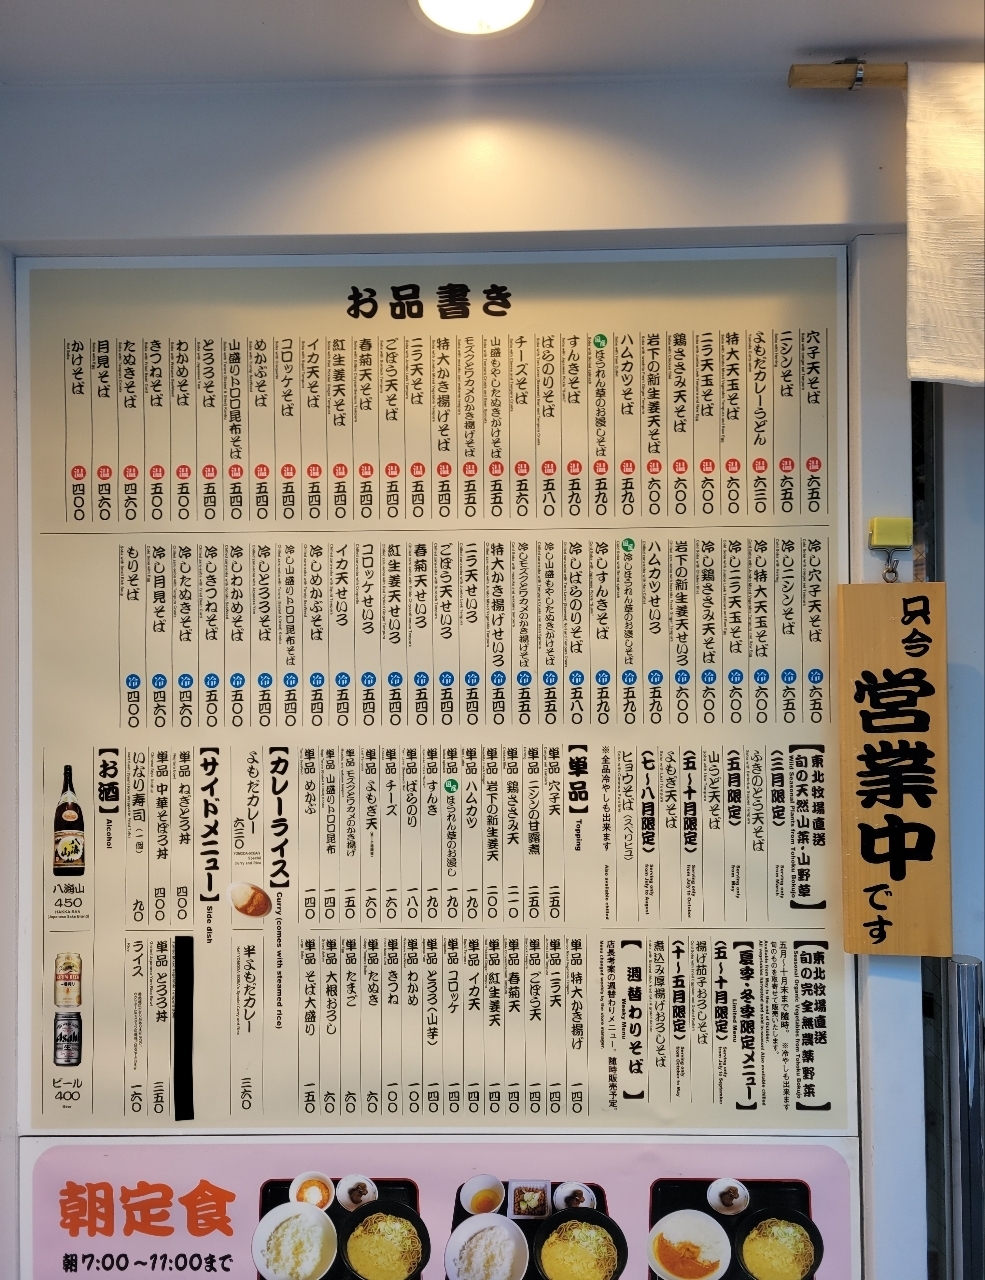 お品書き
穴子天そば 温 六五〇
ニシンそば 温 六五〇
よもだカレーうどん 温 六三〇
特大天玉そば 温 六〇〇
ニラ天玉そば 温 六〇〇
鶏ささみ天そば 温 六〇〇
岩下の新生姜天そば 温 六〇〇
ハムカツそば 温 五九〇
ほうれん草のお浸しそば 温 五九〇
すんきそば 温 五九〇
ばらのりそば 温 五八〇
チーズそば 温 五六〇
山盛もやしたぬきかけそば 温 五五〇
モズクとワカメのかき揚げそば 温 五五〇
特大かき揚げそば 温 五四〇
ニラ天そば 温 五四〇
ごぼう天そば 温 五四〇
春菊天そば 温 五四〇
紅生姜天そば 温 五四〇
イカ天そば 温 五四〇
コロッケそば 温 五四〇
めかぶそば 温 五四〇
山盛りトロロ昆布そば 温 五四〇
とろろそば 温 五四〇
わかめそば 温 五〇〇
きつねそば 温 五〇〇
たぬきそば 温 四六〇
月見そば 温 四六〇
かけそば 温 四〇〇
冷し穴子天そば 冷 六五〇
冷しニシンそば 冷 六五〇
冷し特大天玉そば 冷 六〇〇
冷しニラ天玉そば 冷 六〇〇
冷し鶏ささみ天そば 冷 六〇〇
岩下の新生姜天せいろ 冷 六〇〇
ハムカツせいろ 冷 五九〇
冷しほうれん草のお浸しそば 冷 五九〇
冷しすんきそば 冷 五九〇
冷しばらのりそば 冷 五八〇
冷し山盛もやしたぬきかけそば 冷 五五〇
冷しモズクとワカメのかき揚げそば 冷 五五〇
特大かき揚げせいろ 冷 五四〇
ニラ天せいろ 冷 五四〇
ごぼう天せいろ 冷 五四〇
春菊天せいろ 冷 五四〇
紅生姜天せいろ 冷 五四〇
コロッケせいろ 冷 五四〇
イカ天せいろ 冷 五四〇
冷しめかぶそば 冷 五四〇
冷し山盛りトロロ昆布そば 冷 五四〇
冷しとろろそば 冷 五四〇
冷しわかめそば 冷 五〇〇
冷しきつねそば 冷 五〇〇
冷したぬきそば 冷 四六〇
冷し月見そば 冷 四六〇
もりそば 冷 四〇〇
【東北牧場直送
旬の天然山菜・山野草】
Wild Seasonal Plants from Tohoku Bokujo
〈三月限定〉 Serving only from March
ふきのとう天そば
〈五月限定〉 Serving only from May
山うど天そば
〈五〜十月限定〉 Serving only from July to October
よもぎ天そば
〈七〜八月限定〉 Serving only from July to August
ヒヨウそば（スベリヒユ）
※全品冷やしも出来ます Also available chilled
【単品】 Topping
単品 穴子天 二五〇
単品 ニシンの甘露煮 二五〇
単品 鶏ささみ天 二〇〇
単品 岩下の新生姜天 二〇〇
単品 ハムカツ 一九〇
単品 ほうれん草のお浸し 一九〇
単品 すんき 一九〇
単品 ばらのり 一八〇
単品 チーズ 一六〇
単品 よもぎ天 一六〇
単品 モズクとワカメのかき揚げ 一五〇
単品 山盛りトロロ昆布 一四〇
単品 めかぶ 一四〇
【カレーライス】 Curry (comes with steamed rice)
よもだカレー 六三〇
【サイドメニュー】 Side dish
単品 ねぎとろ丼 四〇〇
単品 中華そぼろ丼 四〇〇
いなり寿司（一個） 一九〇
【お酒】 Alcohol
八海山
450
HAKKAISAN
(Japanese Sake Brand)
【東北牧場直送
旬の完全無農薬野菜】
Seasonal Organic Vegetables from Tohoku Bokujo
五月〜十月末まで随時。 ※冷やしも出来ます
旬のものを併せて販売いたします。
【夏季・冬季限定メニュー】 Limited Menu
〈五〜十月限定〉 Serving only from July to September
揚げ茄子おろしそば
〈十〜五月限定〉 Serving only from October to May
煮込み厚揚げおろしそば
【週替わりそば】 Weekly Menu
店長考案の週替わりメニュー、随時販売予定。
単品 特大かき揚げ 一四〇
単品 ニラ天 一四〇
単品 ごぼう天 一四〇
単品 春菊天 一四〇
単品 紅生姜天 一四〇
単品 イカ天 一四〇
単品 コロッケ 一四〇
単品 とろろ〈山芋〉 一四〇
単品 わかめ 一〇〇
単品 きつね 一〇〇
単品 たぬき 六〇
単品 たまご 六〇
単品 大根おろし 六〇
単品 そば大盛り 一五〇
半よもだカレー 三六〇
単品 とろろ丼 三五〇
ライス 一六〇
ビール
400
Beer
只今
営業中
です
朝定食
朝7:00〜11:00まで